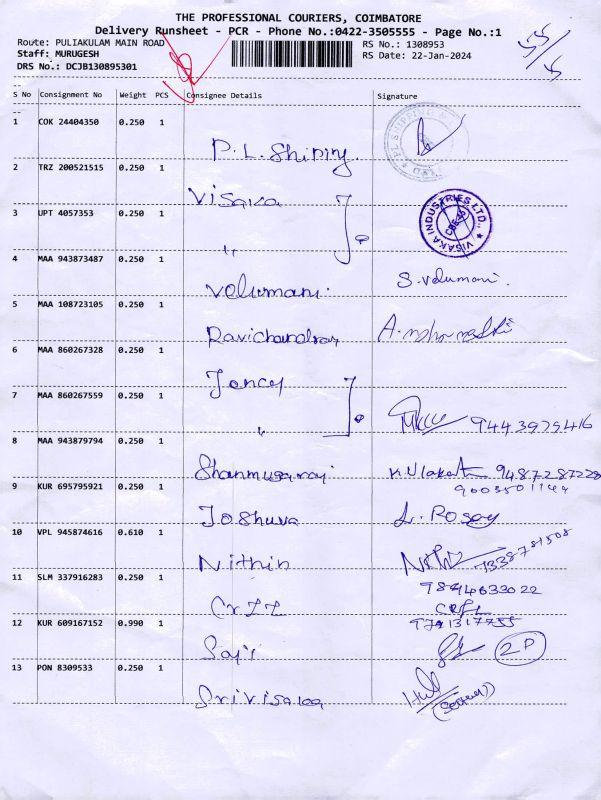 THE PROFESSIONAL COURIERS, COIMBATORE
Delivery Runsheet - PCR - Phone No.:0422-3505555 - Page No.:1
Route: PULIAKULAM MAIN ROAD
RS No.: 1308953
Staff: MURUGESH
RS Date: 22-Jan-2024
DRS No.: DCJB130895301
S No Consignment No Weight PCS Consignee Details Signature
1 COK 24404350 0.250 1
P.L.Shiping
2 TRZ 200521515 0.250 1
Visaka
3 UPT 4057353 0.250 1
"
VISAKA INDUSTRIES LTD.,
CBE-45
4 MAA 943873487 0.250 1
Velumani. S.Velumani.
5 MAA 108723105 0.250 1
Ravichandran
6 MAA 860267328 0.250 1
Jency
7 MAA 860267559 0.250 1
"
9443979416
8 MAA 943879794 0.250 1
Shanmugaraj 9487287228
9003501144
9 KUR 695795921 0.250 1
Joshuva L. Rosey
10 VPL 945874616 0.610 1
Nithin 7338781508
11 SLM 337916283 0.250 1
9844633022
12 KUR 609167152 0.990 1
Saji 2D
13 PON 8309533 0.250 1
Srivisaka